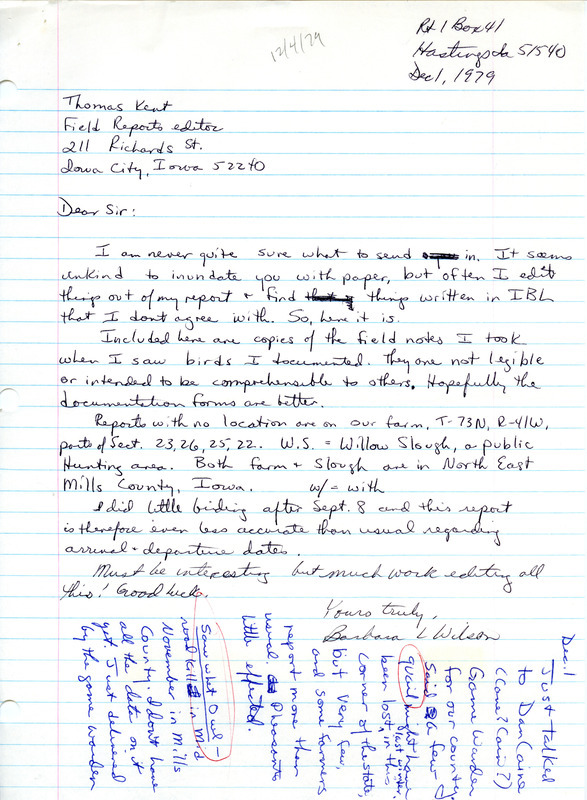 12/4/79
Rt 1 Box 41
Hastings Ia 51540
Dec 1, 1979
Thomas Kent
Field Reports editor
211 Richards St.
Iowa City, Iowa 52240
Dear Sir:
I am never quite sure what to send in. It seems
unkind to inundate you with paper, but often I edit
things out of my report + find things written in IBL
that I don't agree with. So, here it is.
Included here are copies of the field notes I took
when I saw birds I documented. They are not legible
or intended to be comprehensible to others. Hopefully the
documentation forms are better.
Reports with no location are on our farm, T-73N, R-41W,
parts of Sect. 23, 26, 25, 22. W.S. = Willow Slough, a public
Hunting area. Both farm + Slough are in North East
Mills County, Iowa. w/ = with
I did little birding after Sept. 8 and this report
is therefore even less accurate than usual regarding
arrival + departure dates.
Must be interesting but much work editing all
this! Good luck.
Yours truly,
Barbara L Wilson
Dec. 1
Just Talked
to Dan Caine
(Cane? Cain?)
Game Warden
for our county.
Said a few
quail might have
been lost, last winter, in this
corner of the state,
but very few,
and some farmers
report more than
usual. Pheasants
little effected.
Saw what Owl -
road kill in Mid
November in Mills
County. I don't have
all the data on it
yet. Just delivered
by the game warden